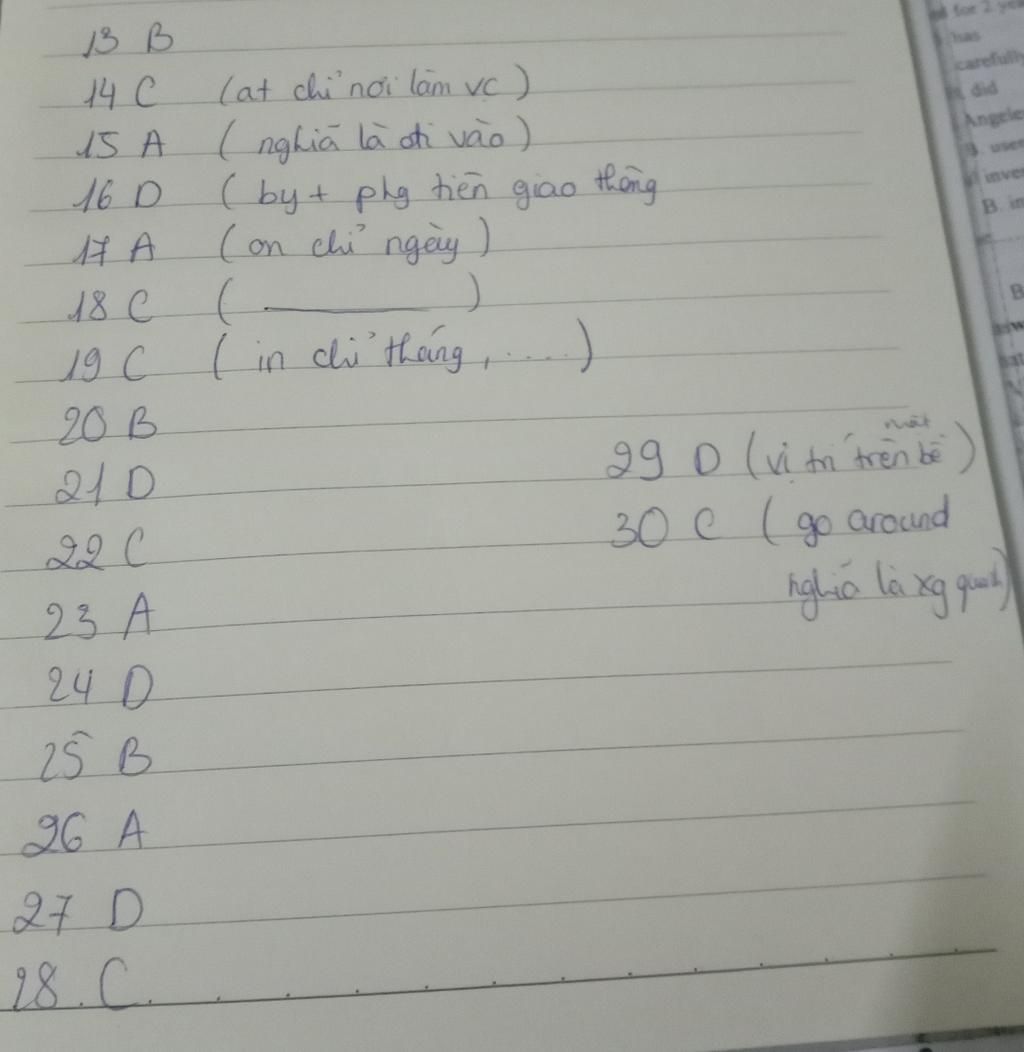 13 B
14 C (at chỉ nơi làm vc)
15 A (nghĩa là đi vào)
16 D (by + phg tiện giao thông
17 A (on chỉ ngày)
18 C ( ———— )
19 C (in chỉ tháng, .....)
20 B
21 D
22 C
23 A
24 D
25 B
26 A
27 D
28. C
29 D (vị trí trên bề mặt)
30 C (go around
nghĩa là xg quanh)
for 2
has
carefully
did
Angeles
B. in
B